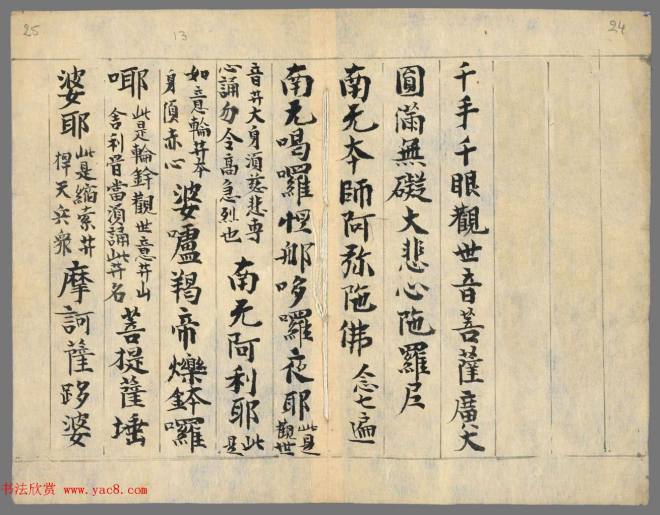 25
13
24
千手千眼觀世音菩薩廣大
圓滿無礙大悲心陁羅尼
南无本師阿弥陁佛 念七遍
南无喝囉怛那哆囉夜耶 此是觀世
音井大身須慈悲專心誦勿令高急烈也 南无阿利耶 此是
如意輪井本身須赤心 婆嚧羯帝爍鉢囉
耶 此是輪鉾觀世意井山舍利骨當須誦此井名 菩提薩埵
婆耶 此是縜索井捍天兵衆 摩訶薩跢婆
书法欣赏 www.yac8.com